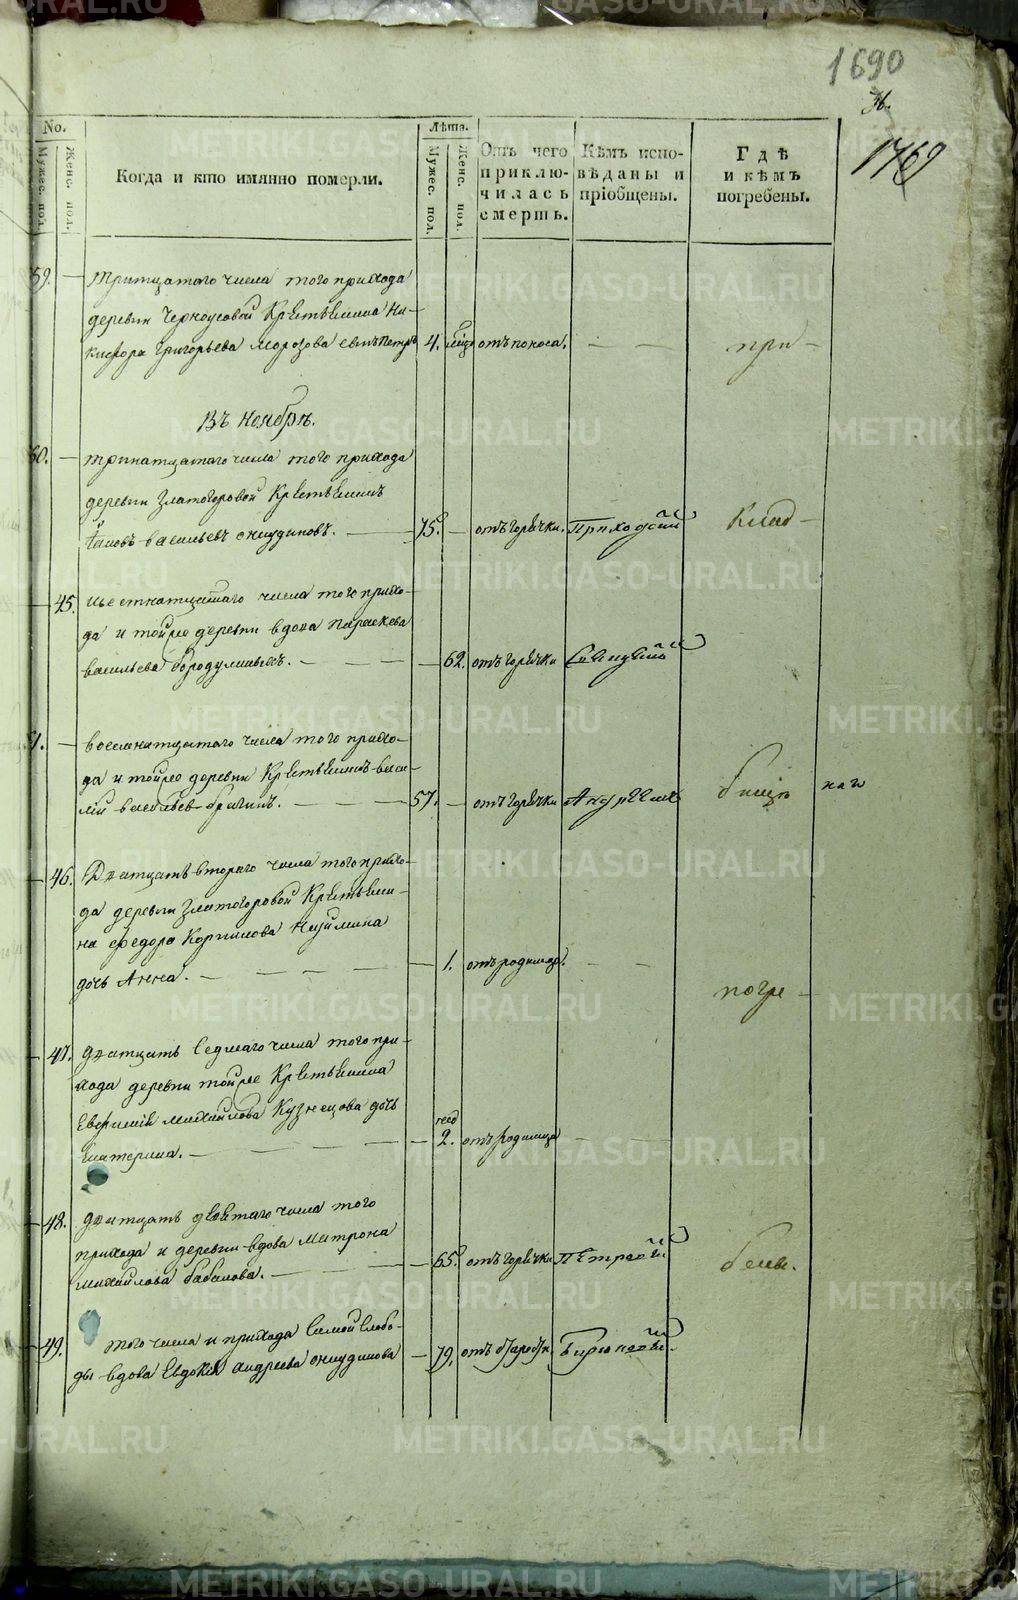 1690
36.
1769
No.
Мужес. пол.
Женс. пол.
Когда и кто имянно померли.
Лѣта.
Мужес. пол.
Женс. пол.
Отъ чего приключилась смерть.
Кѣмъ исповѣданы и пріобщены.
Гдѣ и кѣмъ погребены.
59. — тритцатого числа того прихода
деревни Черноусовой Крестьянина Ни-
кифора Григорьева Морозова сынъ Петръ 4. мѣсц отъ поноса. — — при-
Въ ноябрѣ.
60. — тринатцатого числа того прихода
деревни Златогоровой Крестьянинъ
васильевъ ончудиновъ. — 75. — отъ горячки. Приходский Клад-
— 45. шестнатцатаго числа того прихо-
да и тойже деревни вдова параскева
васильева бородулиныхъ. — — — 62. отъ горячки
61. — восемнатцатого числа того прихо-
да и тойже деревни Крестьянинъ васи-
лій васильевъ брагинъ. — — 57. — отъ горячки Андрей бищѣ наго
— 46. Дватцать втораго числа того прихо-
да деревни Златогоровой Крестьяни-
на федора Корнилова
дочь Анна. — — — — 1. отъ родимца. — — погре-
— 47. дватцать седмаго числа того при-
хода деревни тойже Крестьянина
Евфимія михайлова Кузнецова дочь
Екатерина. — — — — нед 2. отъ родимца —
— 48. дватцать девятаго числа того
прихода и деревни вдова Матрона
михайлова бабанова. — — — 65. отъ горячки бены.
— 49. того числа и прихода самой слобо-
ды вдова Евдокія андреева ончудинова — 79. отъ старости Бирюковъ.